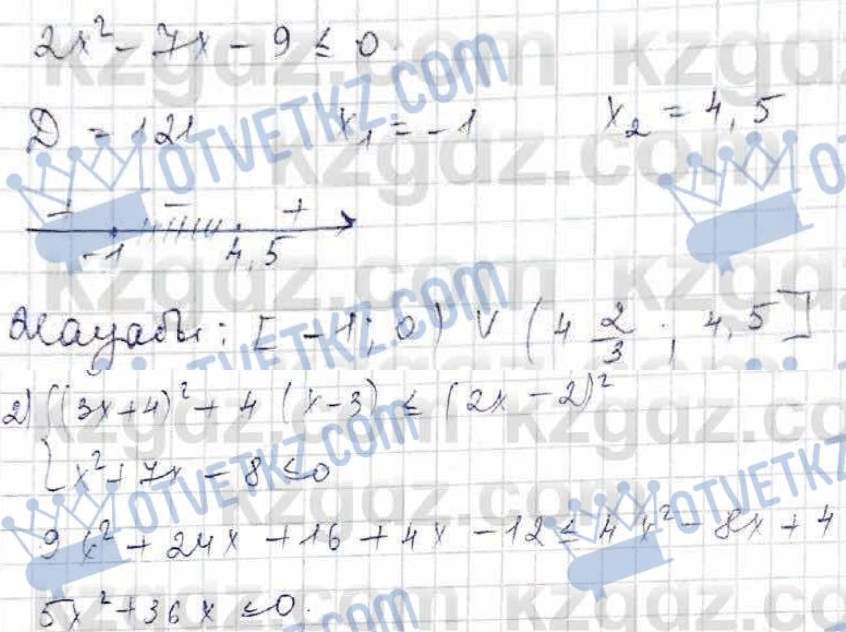 2x² - 7x - 9 ≤ 0
D = 121 x₁ = -1 x₂ = 4,5
+ - +
-1 4,5
Жауабы: [-1; 0) ∨ (4 2/3; 4,5]
2) {(3x+4)² + 4(x-3) ≤ (2x-2)²
x² + 7x - 8 ≤ 0
9x² + 24x + 16 + 4x - 12 ≤ 4x² - 8x + 4
5x² + 36x ≤ 0.
kzgdz.com
OTVETKZ.COM